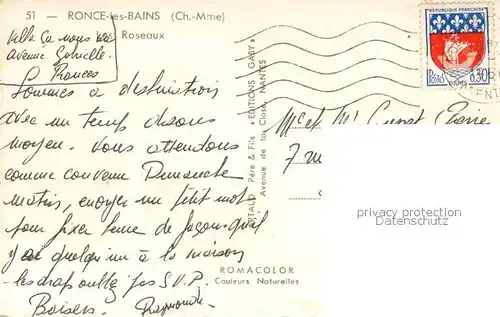 51 — RONCE-les-BAINS (Ch.-Mme)
Roseaux
Villa Ça nous va
avenue Gabrielle.
Sommes à destination
avec un temps disons
moyen. Vous attendons
comme convenu Dimanche
matin, envoyer un petit mot
pour fixer heure de façon qu'il
y ai quelqu'un à la maison
les draps oublié pas S.V.P.
Baisers. Raymonde
ROMACOLOR
Couleurs Naturelles
Père & Fils • EDITIONS GABY •
Avenue de la Close, NANTES
REPUBLIQUE FRANÇAISE
POSTES
0,30
PARIS
Mr et Mme
7
privacy protection
Datenschutz